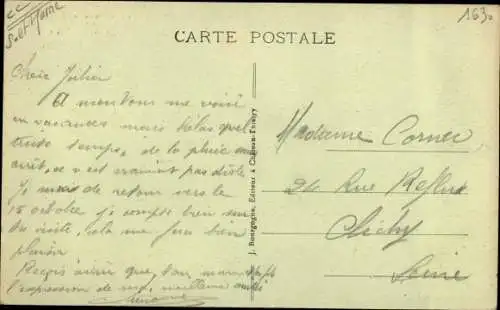 S.-et-Marne
163.
CARTE POSTALE
Chère
A mon tour me voici
en vacances mais hélas quel
temps, de la pluie sans
arrêt, ce n'est vraiment pas drôle
Je de retour vers le
15 octobre je compte bien sur
ta visite, cela me fera bien
plaisir
Reçois ainsi que ton
l'expression de ma meilleure amitié
J. Bourgogne, Editeur à Château-Thierry
Madame Cornec
24 Rue
Clichy
Seine